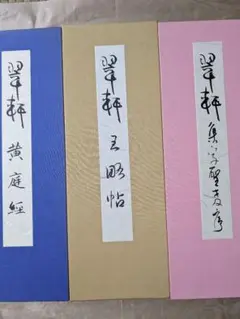 翠軒 集字聖教序
翠軒 王略帖
翠軒 黄庭經